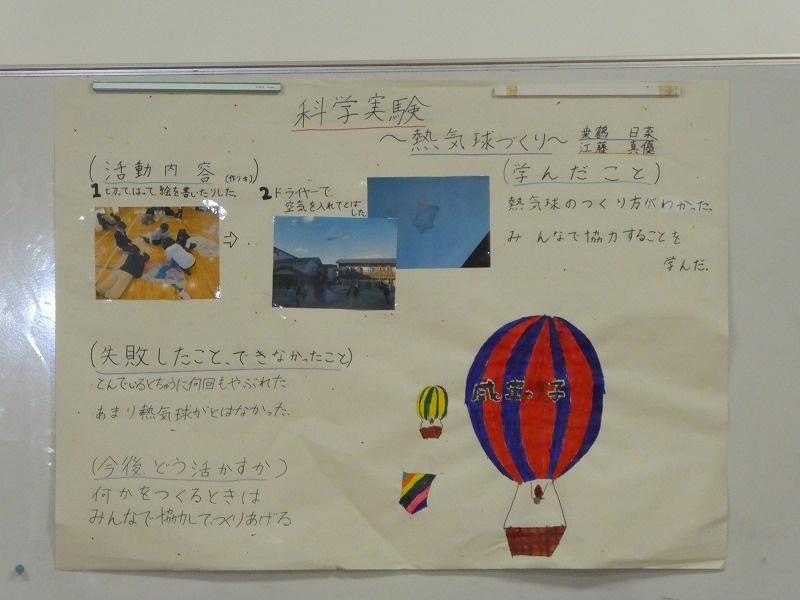 科学実験
〜熱気球づくり〜
乗鶴 日菜
江藤 真優
(活動内容(作り方))
1 切って、はって絵を書いたりした。
2 ドライヤーで、
空気を入れてとば
した
(学んだこと)
熱気球のつくり方がわかった。
みんなで協力することを
学んだ。
(失敗したこと、できなかったこと)
とんでいるとちゅうに何回もやぶれた
あまり熱気球がとばなかった。
(今後、どう活かすか)
何かをつくるときは
みんなで協力して、つくりあげる
っ子